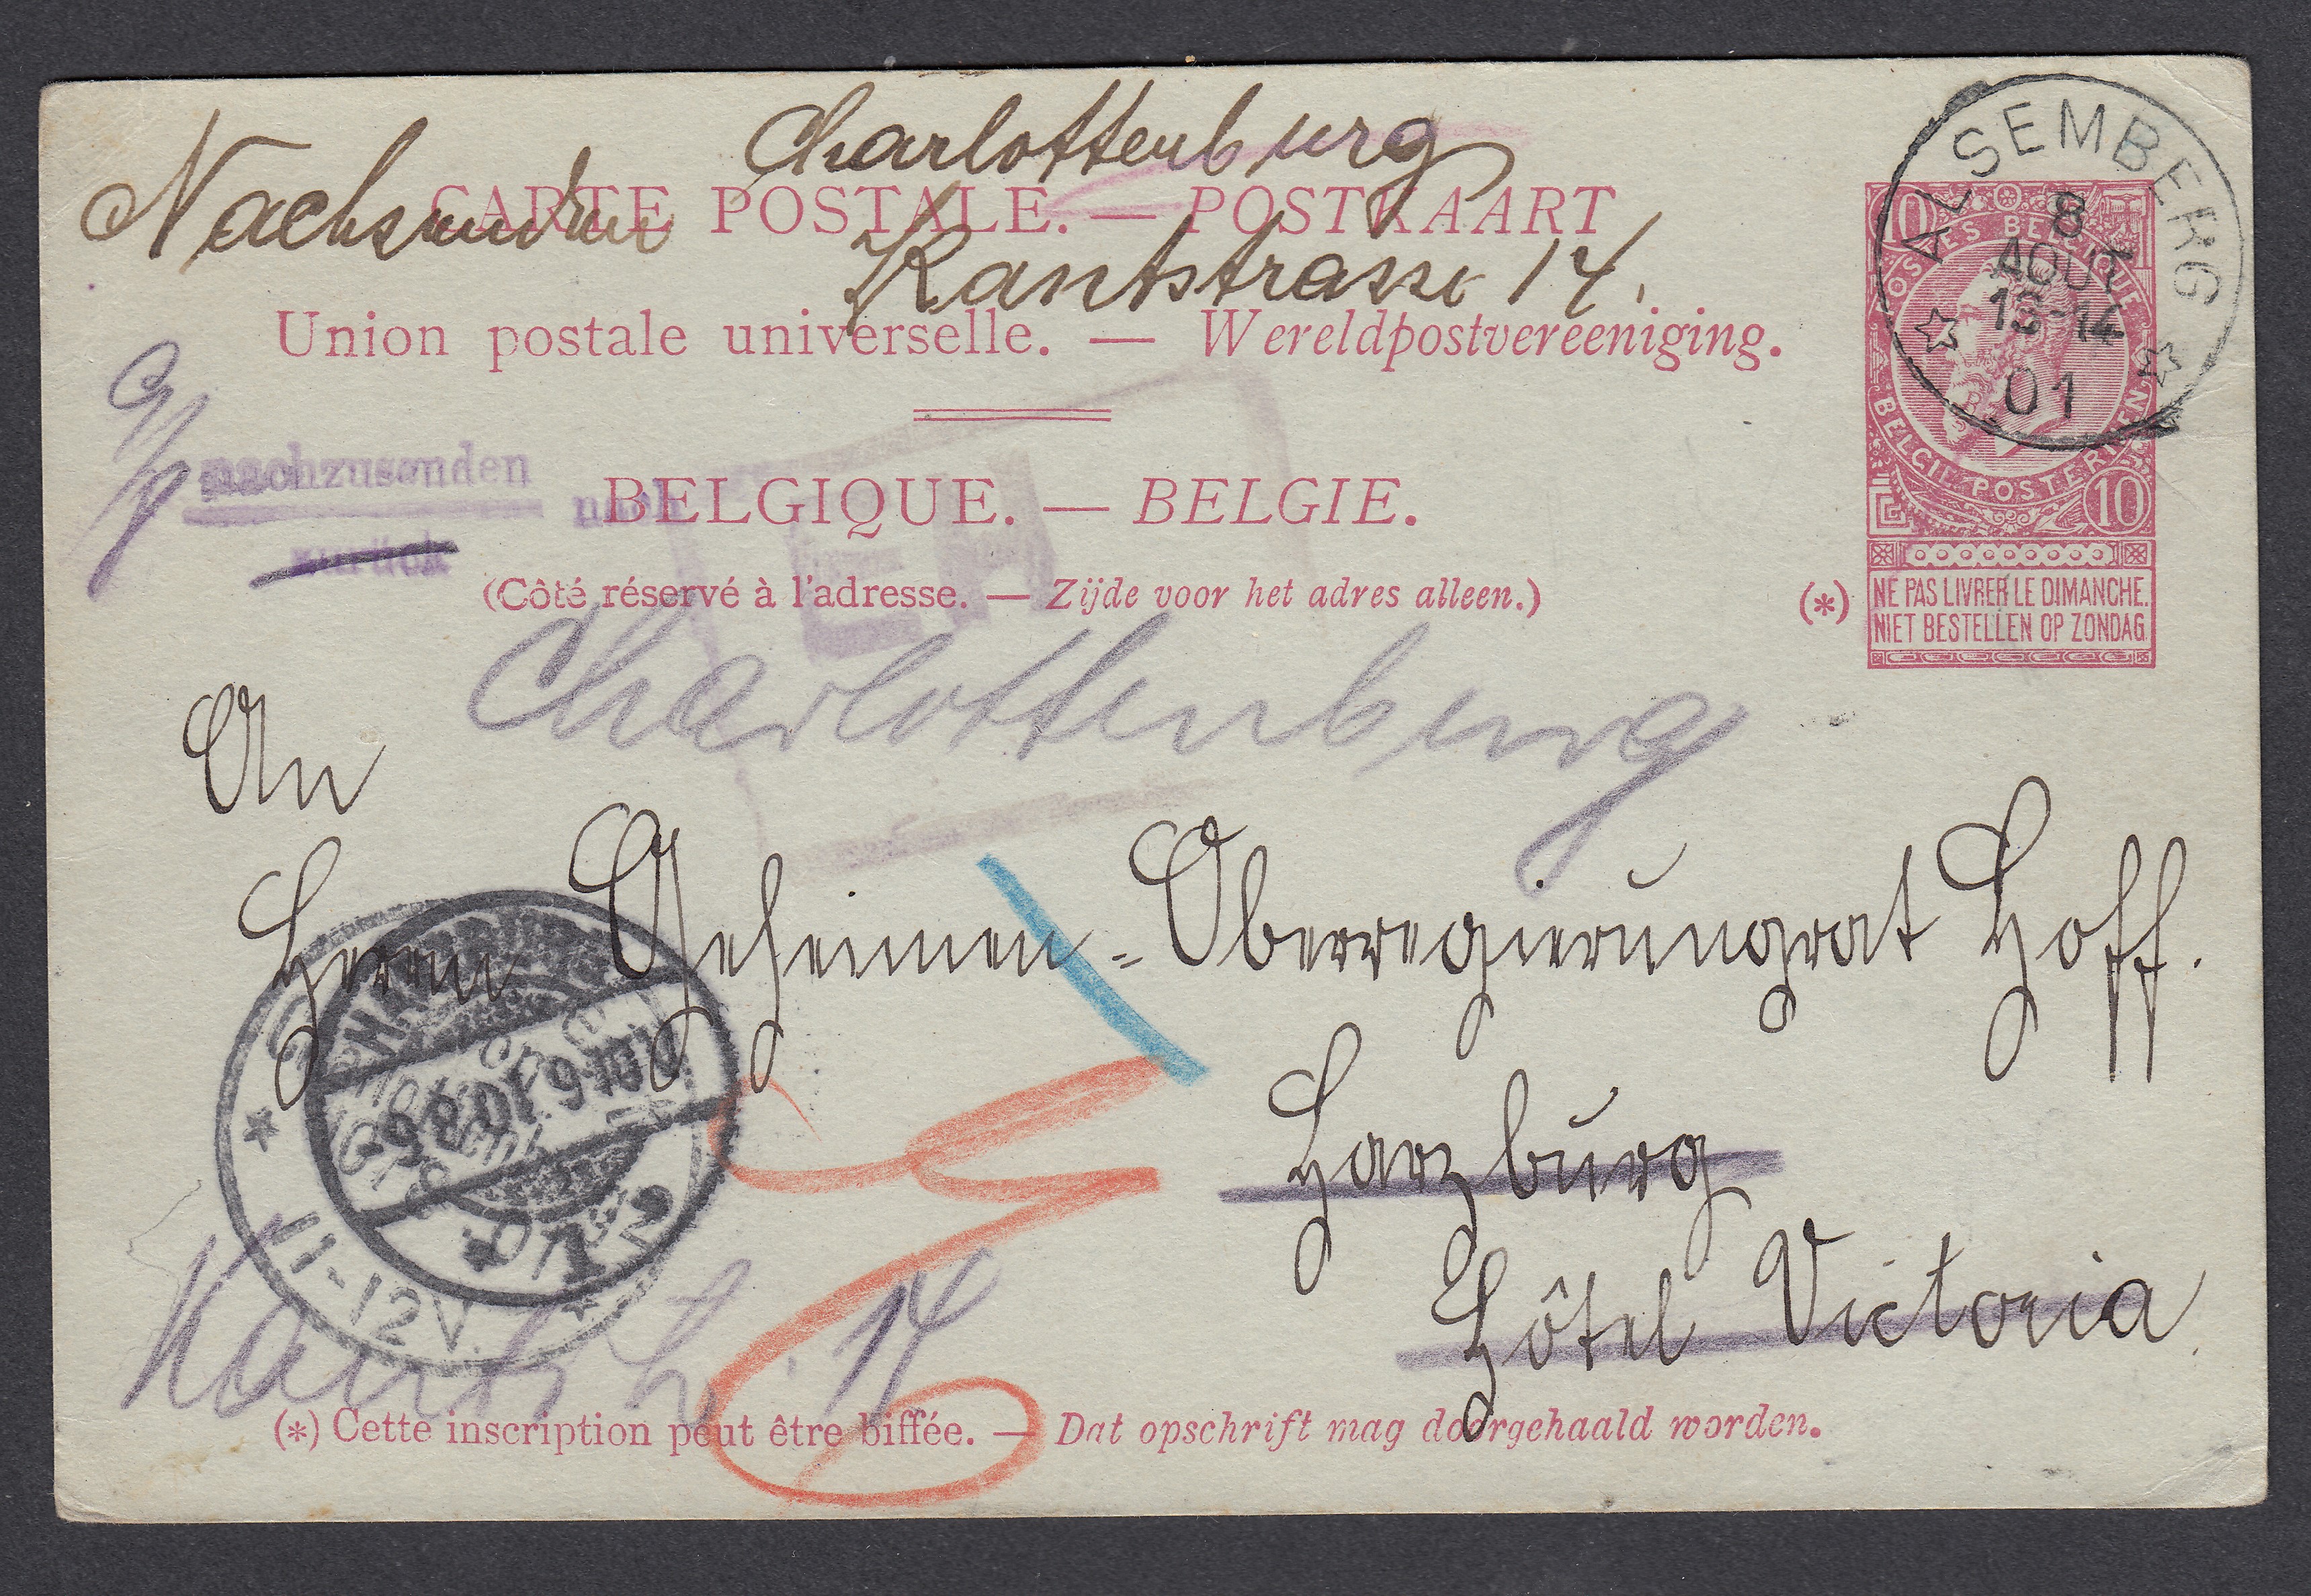 Charlottenburg
Nachsenden
CARTE POSTALE. — POSTKAART
Kantstrasse 14.
Union postale universelle. — Wereldpostvereeniging.
ALSEMBERG
8
AOUT
13-14
01
10
POSTES BELGIQUE
BELGIE POSTERIJEN
10
NE PAS LIVRER LE DIMANCHE.
NIET BESTELLEN OP ZONDAG
(*)
9/8
nachzusenden
nach
zurück
BELGIQUE. — BELGIE.
(Côté réservé à l'adresse. — Zijde voor het adres alleen.)
Charlottenburg
An
Herrn Geheimen-Oberregierungrat Hoff.
Harzburg
Hôtel Victoria
9.8.01. 9-10V
11-12V.
Kantstr. 14
(*) Cette inscription peut être biffée. — Dat opschrift mag doorgehaald worden.